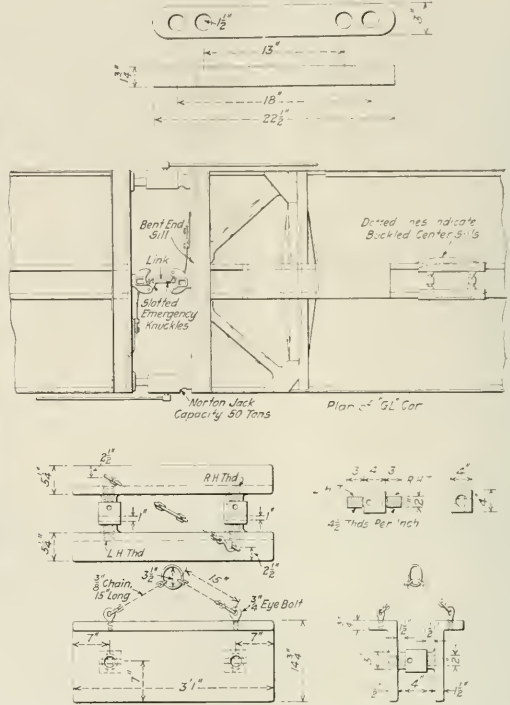 3"
1½"
13"
1¾"
18"
22½"
Bent End
Sill
Link
Slotted
Emergency
Knuckles
Dotted Lines Indicate
Buckled Center Sills
Norton Jack
Capacity 50 Tons
Plan of "GL" Car
2½"
5¼"
R H Thd
1"
1"
5¼"
L H Thd
2½"
3 4 3
4"
4"
2"
4½ Thds Per Inch
⅜" Chain,
15" Long
3½"
15"
¾" Eye Bolt
7"
7"
7"
14¾"
3'1"
4"
1½"